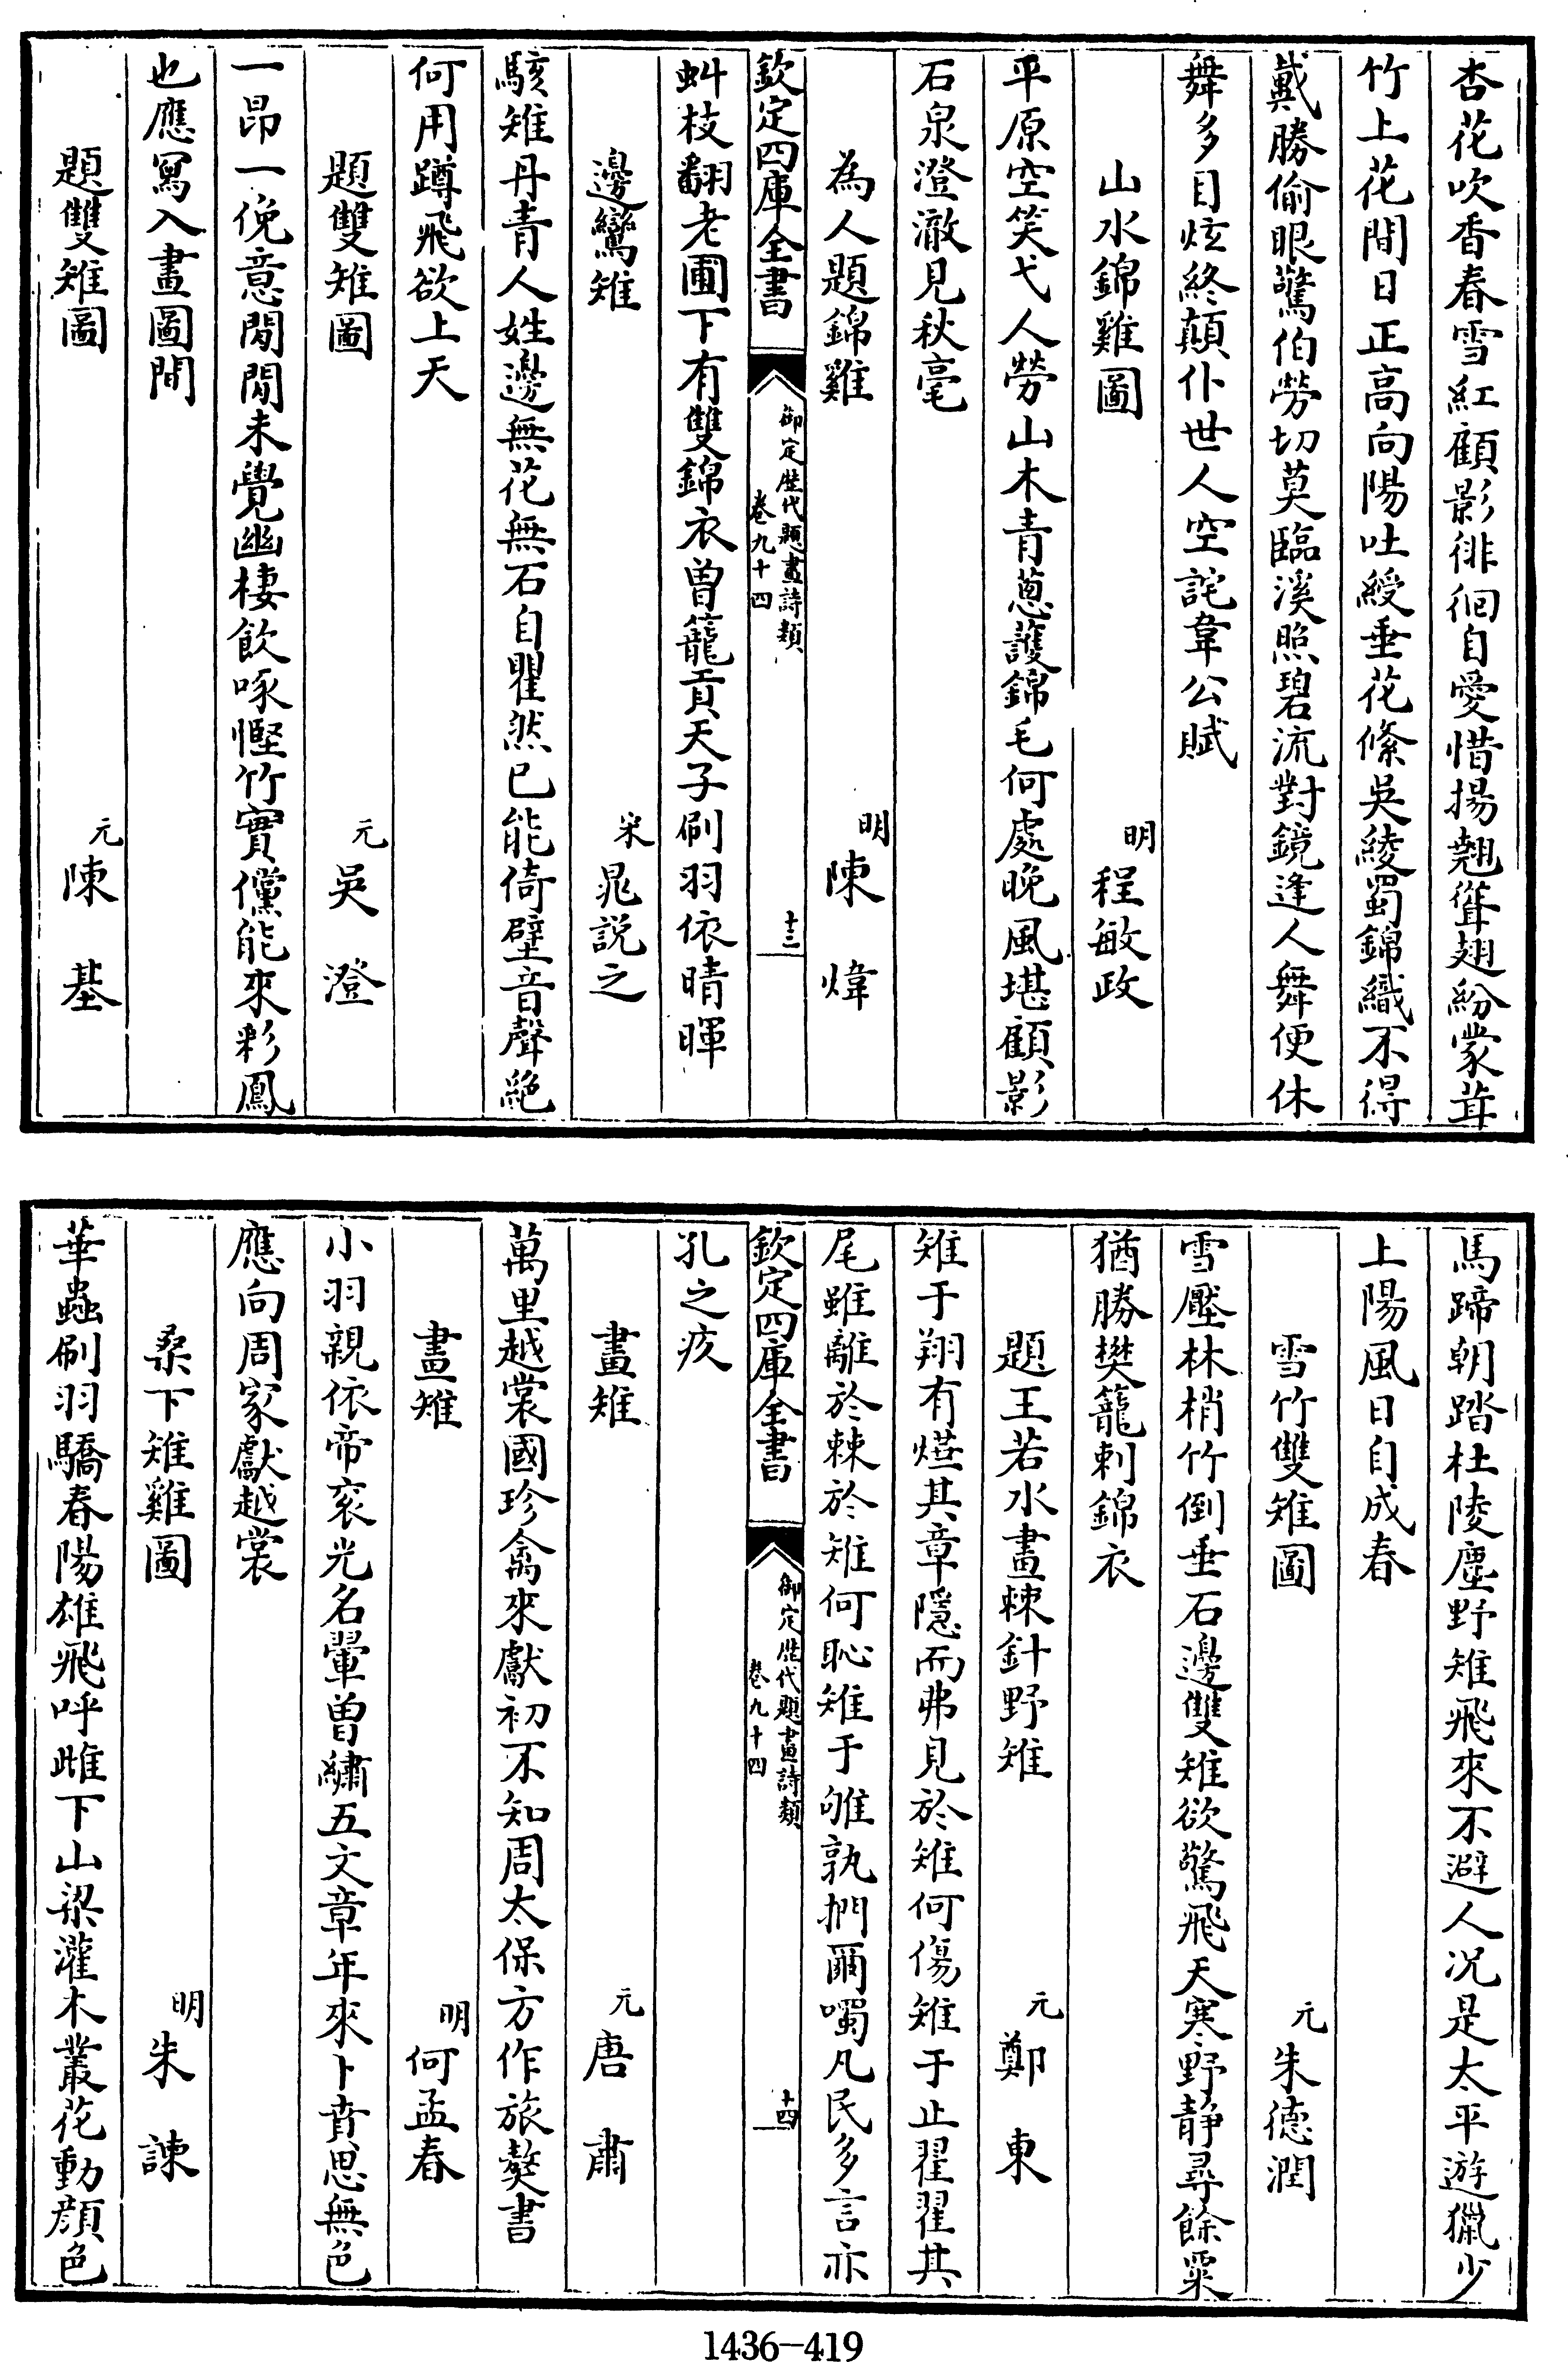 杏花吹香春雪紅顧影徘徊自愛惜揚翹聳翅紛蒙茸
竹上花間日正高向陽吐綬垂花絛吳綾蜀錦織不得
戴勝偷眼驚伯勞切莫臨溪照碧流對鏡逢人舞便休
舞多目炫終顛仆世人空詫韋公賦
山水錦雞圖 明 程敏政
平原空笑弋人勞山木青蔥護錦毛何處晚風堪顧影
石泉澄澈見秋毫
為人題錦雞 明 陳煒
欽定四庫全書 御定歷代題畫詩類 卷九十四 十三
虯枝翻老圃下有雙錦衣曾籠貢天子刷羽依晴暉
邊鸞雉 宋 晁說之
駭雉丹青人姓邊無花無石自瞿然已能倚壁音聲絕
何用蹲飛欲上天
題雙雉圖 元 吳澄
一昂一俛意閒閒未覺幽棲飲啄慳竹實儻能來彩鳳
也應寫入畫圖間
題雙雉圖 元 陳基
馬蹄朝踏杜陵塵野雉飛來不避人况是太平遊獵少
上陽風日自成春
雪竹雙雉圖 元 朱德潤
雪壓林梢竹倒垂石邊雙雉欲驚飛天寒野靜尋餘粟
猶勝樊籠刺錦衣
題王若水畫棘針野雉 元 鄭東
雉于翔有煙其章隱而弗見於雉何傷雉于止翟翟其
尾雖離於棘於雉何恥雉于雊孰捫爾噣凡民多言亦
欽定四庫全書 御定歷代題畫詩類 卷九十四 十四
孔之疚
畫雉 元 唐肅
萬里越裳國珍禽來獻初不知周太保方作旅獒書
畫雉 明 何孟春
小羽親依帝衮光名翬曾繡五文章年來卜賁思無色
應向周家獻越裳
桑下雉雞圖 明 朱諫
華蟲刷羽驕春陽雄飛呼雌下山梁灌木叢花動顔色
1436-419